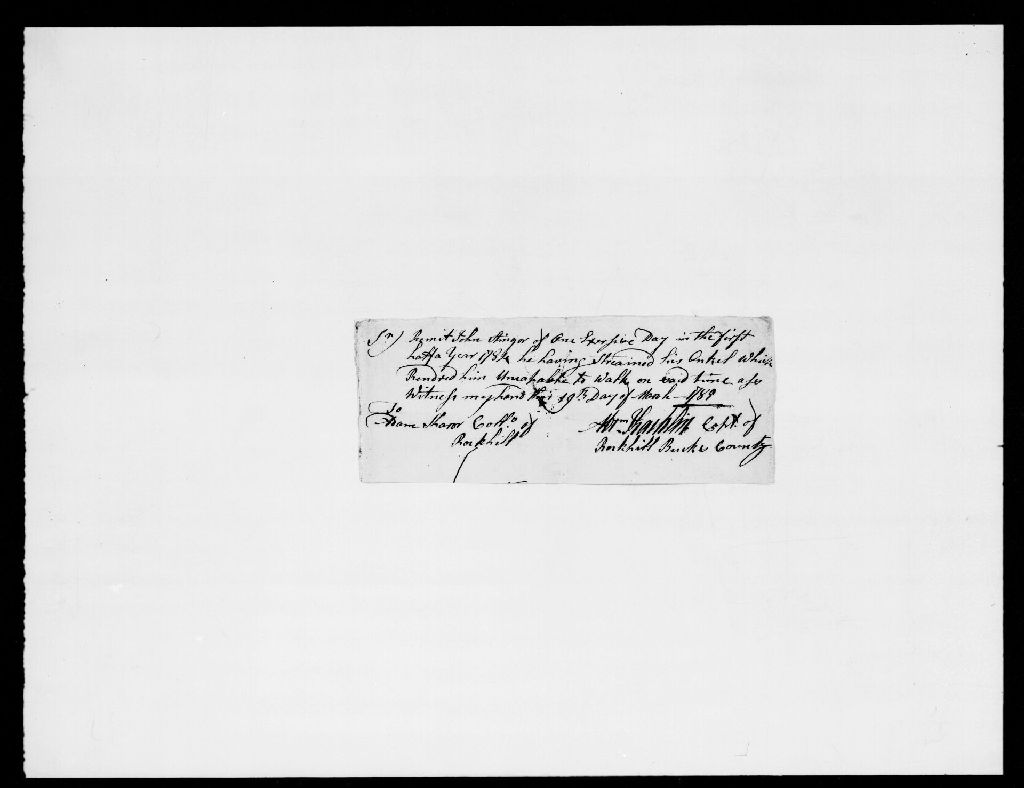 Sir) Remit John Stinger of One Exersise Day in the first
half a Year 1784 he having Streained his Ankel Which
Rendred him Uncapable to Walk on said time as
Witness my hand this 19th Day of March 1785
To
Adam Sharor Collr of
Rockhill
Wm Captn of
Rockhill Bucks County